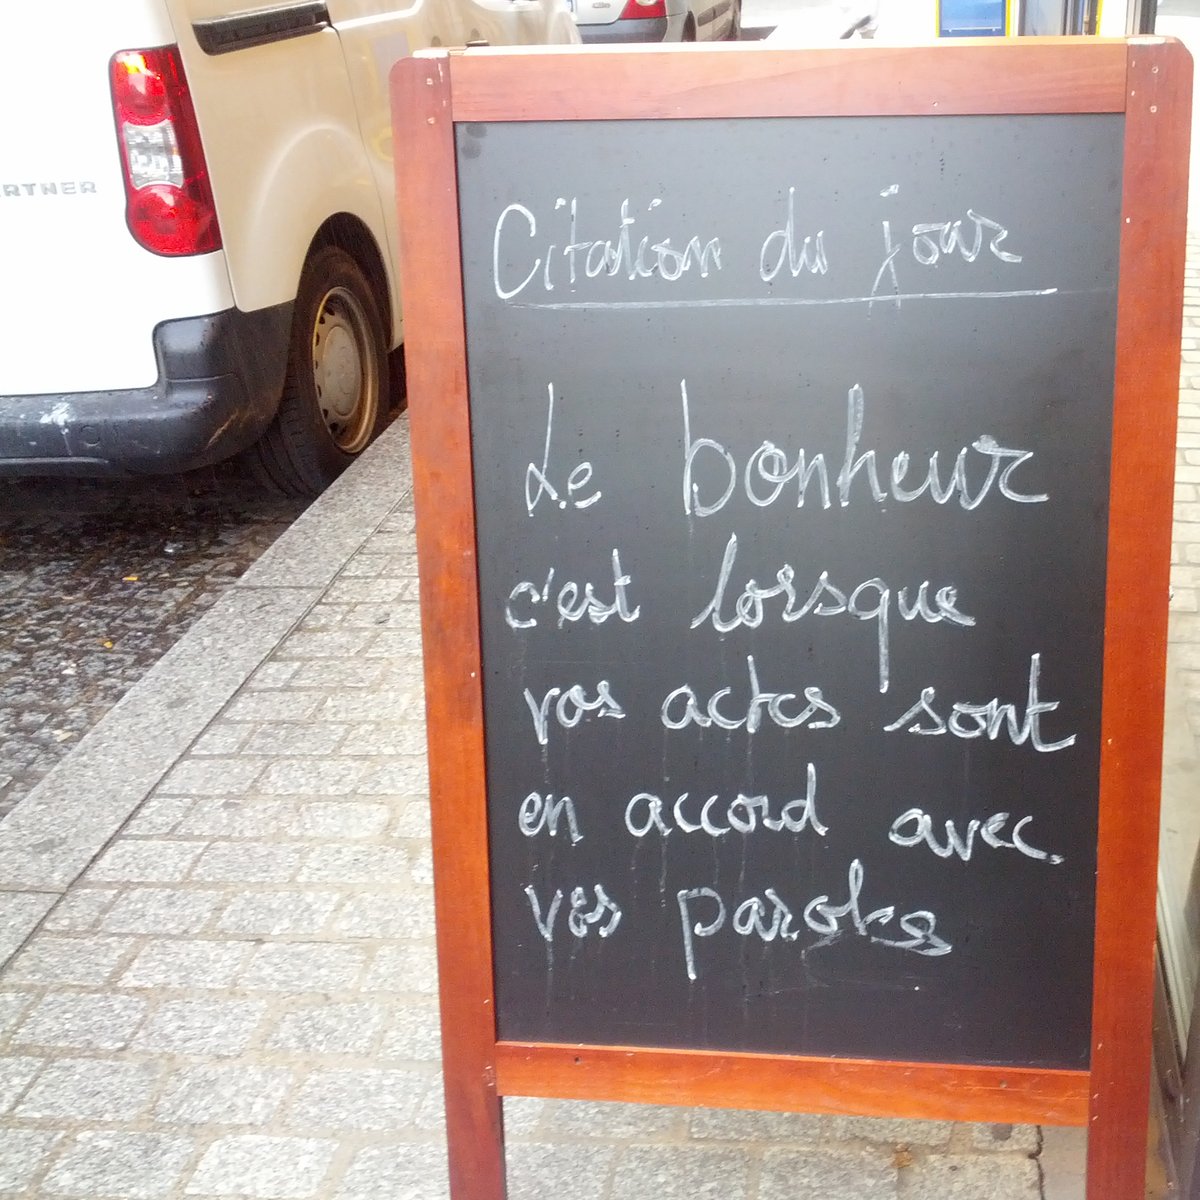 RTNER
Citation du jour
Le bonheur
c'est lorsque
vos actes sont
en accord avec
vos paroles